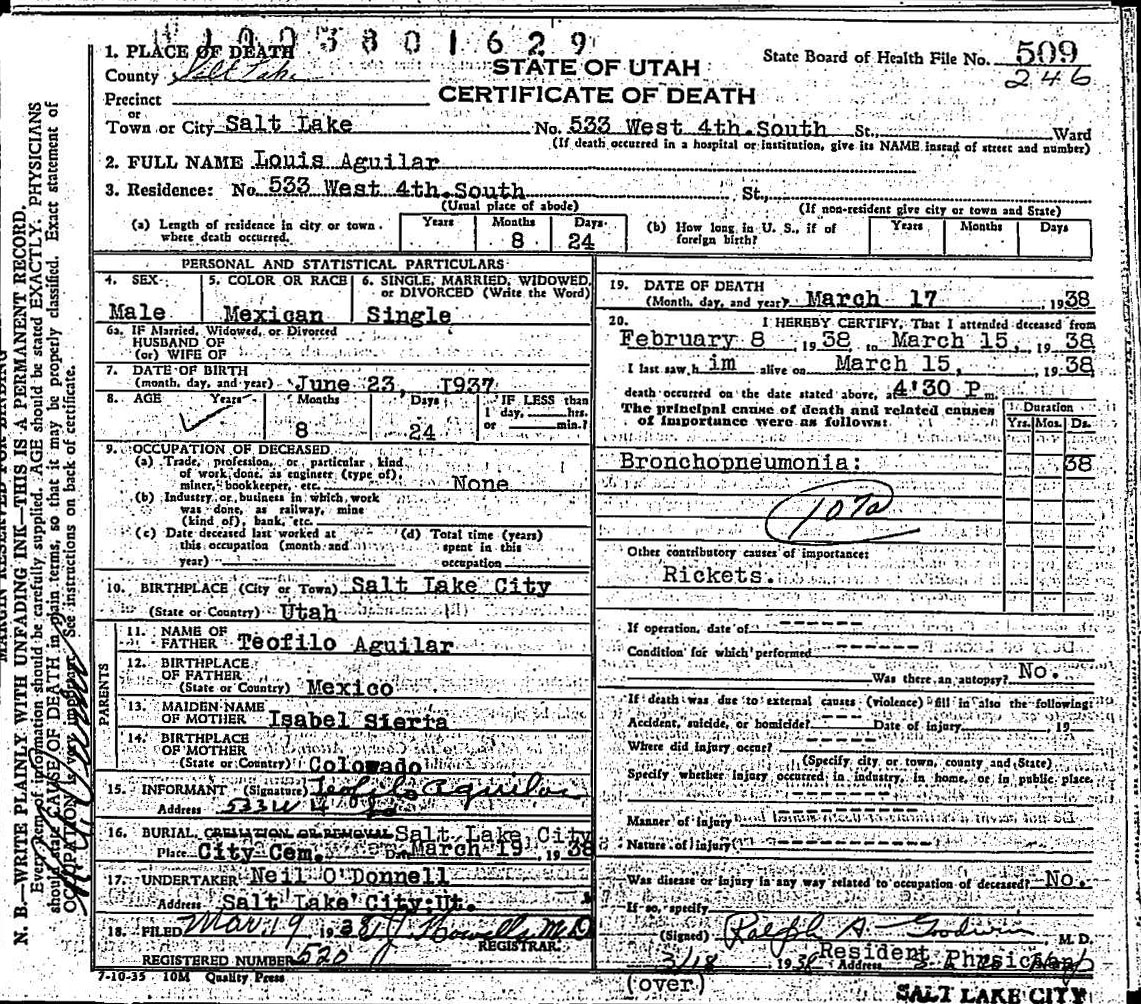 1003801629
1. PLACE OF DEATH
County Salt Lake
STATE OF UTAH
CERTIFICATE OF DEATH
State Board of Health File No. 509
246
Precinct
or
Town or City Salt Lake No. 533 West 4th.South St., Ward
(If death occurred in a hospital or institution, give its NAME instead of street and number)
2. FULL NAME Louis Aguilar
3. Residence: No. 533 West 4th.South St.,
(Usual place of abode) (If non-resident give city or town and State)
(a) Length of residence in city or town where death occurred. Years Months 8 Days 24
(b) How long in U. S., if of foreign birth? Years Months Days
PERSONAL AND STATISTICAL PARTICULARS
4. SEX Male
5. COLOR OR RACE Mexican
6. SINGLE, MARRIED, WIDOWED, or DIVORCED (Write the Word) Single
6a. IF Married, Widowed, or Divorced
HUSBAND OF
(or) WIFE OF
7. DATE OF BIRTH
(month, day, and year) June 23, 1937
8. AGE Years Months 8 Days 24 IF LESS than
1 day, hrs.
or min.?
9. OCCUPATION OF DECEASED
(a) Trade, profession, or particular kind
of work done, as engineer (type of),
miner, bookkeeper, etc. None
(b) Industry or business in which work
was done, as railway, mine
(kind of), bank, etc.
(c) Date deceased last worked at
this occupation (month and
year)
(d) Total time (years)
spent in this
occupation
10. BIRTHPLACE (City or Town) Salt Lake City
(State or Country) Utah
PARENTS
11. NAME OF
FATHER Teofilo Aguilar
12. BIRTHPLACE
OF FATHER
(State or Country) Mexico
13. MAIDEN NAME
OF MOTHER Isabel Sierra
14. BIRTHPLACE
OF MOTHER
(State or Country) Colorado
15. INFORMANT (Signature) Teofilo Aguilar
Address 533 W 4 So
16. BURIAL, CREMATION OR REMOVAL Salt Lake City
Place City Cem. Date March 19, 1938
17. UNDERTAKER Neil O'Donnell
Address Salt Lake City:Ut.
18. FILED Mar 19 1938 Howells M.D.
REGISTRAR.
REGISTERED NUMBER 520
7-10-35 10M Quality Press
19. DATE OF DEATH
(Month, day, and year) March 17 1938
20. I HEREBY CERTIFY, That I attended deceased from
February 8, 1938, to March 15, 1938
I last saw him alive on March 15, 1938,
death occurred on the date stated above, at 4:30 P m.
The principal cause of death and related causes
of importance were as follows:
Duration
Yrs. Mos. Ds.
Bronchopneumonia: 38
107a
Other contributory causes of importance:
Rickets.
If operation, date of -------
Condition for which performed -------
Was there an autopsy? No.
If death was due to external causes (violence) fill in also the following:
Accident, suicide, or homicide? ---- Date of injury , 19
Where did injury occur? -------
(Specify city or town, county and State)
Specify whether injury occurred in industry, in home, or in public place.
Manner of injury
Nature of injury
Was disease or injury in any way related to occupation of deceased? No.
If so, specify
(Signed) Ralph A. Goodwin M. D.
Resident Physician
3/18 1938 Address
(over)
SALT LAKE CITY
MARGIN RESERVED FOR BINDING
N. B.—WRITE PLAINLY WITH UNFADING INK—THIS IS A PERMANENT RECORD.
Every item of information should be carefully supplied. AGE should be stated EXACTLY. PHYSICIANS
should state CAUSE OF DEATH in plain terms, so that it may be properly classified. Exact statement of
OCCUPATION is very important. See instructions on back of certificate.